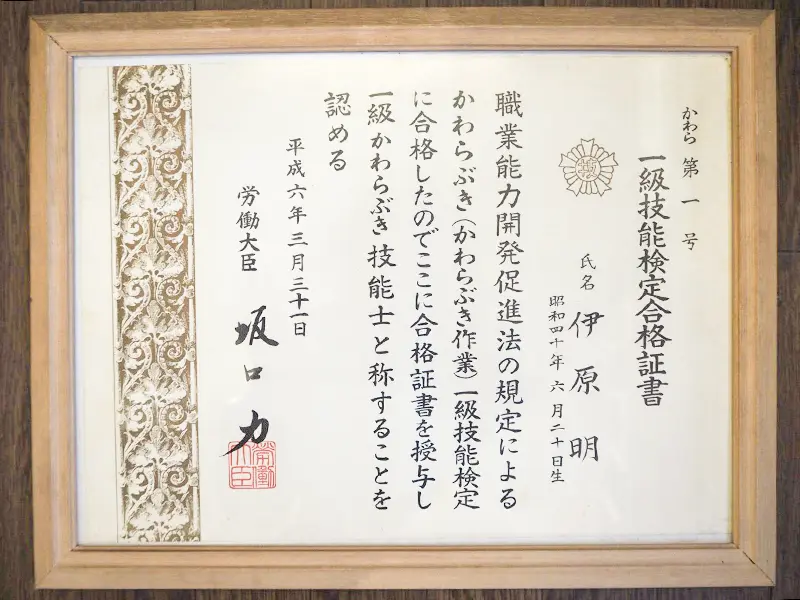 かわら 第 一 号
一級技能検定合格証書
氏名 伊原 明
昭和四十年六月二十日生
職業能力開発促進法の規定による
かわらぶき(かわらぶき作業)一級技能検定
に合格したのでここに合格証書を授与し
一級かわらぶき技能士と称することを
認める
平成六年三月三十一日
労働大臣 坂口力
労働大臣